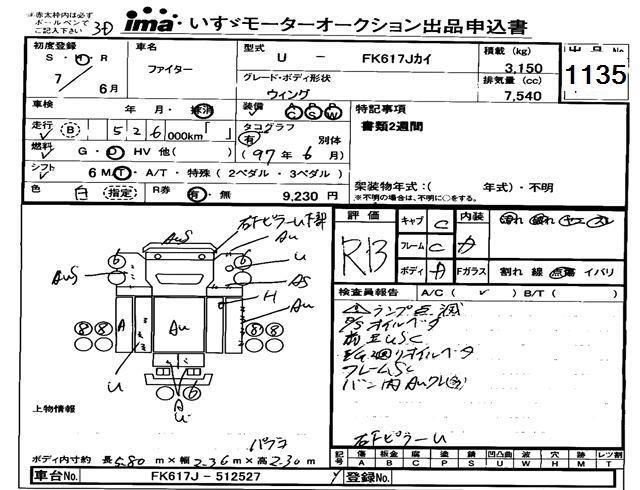 ※赤太枠内は必ず
ボールペンで
ご記入下さい
ima いすゞモーターオークション出品申込書
初度登録
S・H・R
7
6月
車名
ファイター
型式
U － FK617Jカイ
グレード・ボディ形状
ウィング
積載 (kg)
3,150
排気量 (cc)
7,540
出品No
1135
車検
年 月・抹消
装備
A C
P S
P W
特記事項
書類2週間
走行
B
526,000km「 」
タコグラフ
有 別体
(97年6月)
燃料
G・D HV 他( )
シフト
6 M/T・A/T・特殊(2ペダル・3ペダル)
色
白 (指定)
R券
有・無 9,230円
架装物年式:( 年式)・不明
※不明の場合は、不明に○をする。
評価
RB
キャブ C
フレーム C
ボディ A
内装
Fガラス 割れ 線 点傷 イバリ
検査員報告 A/C( ✓ ) B/T( )
ランプ点滅
P/Sオイルベタ
フレームSC
右Fピラーu
AuS
Au
u
AuS
AS
H
Au
A
Au
u
6
6
8 8
8 8
6
上物情報
ボディ内寸約 長5.80m×幅2.36m×高2.30m
記号
傷 板金 腐 塗 錆 凹凸曲 波 穴 跡 レツ割
A B C P S U W H M T
車台No. FK617J－512527
登録No.